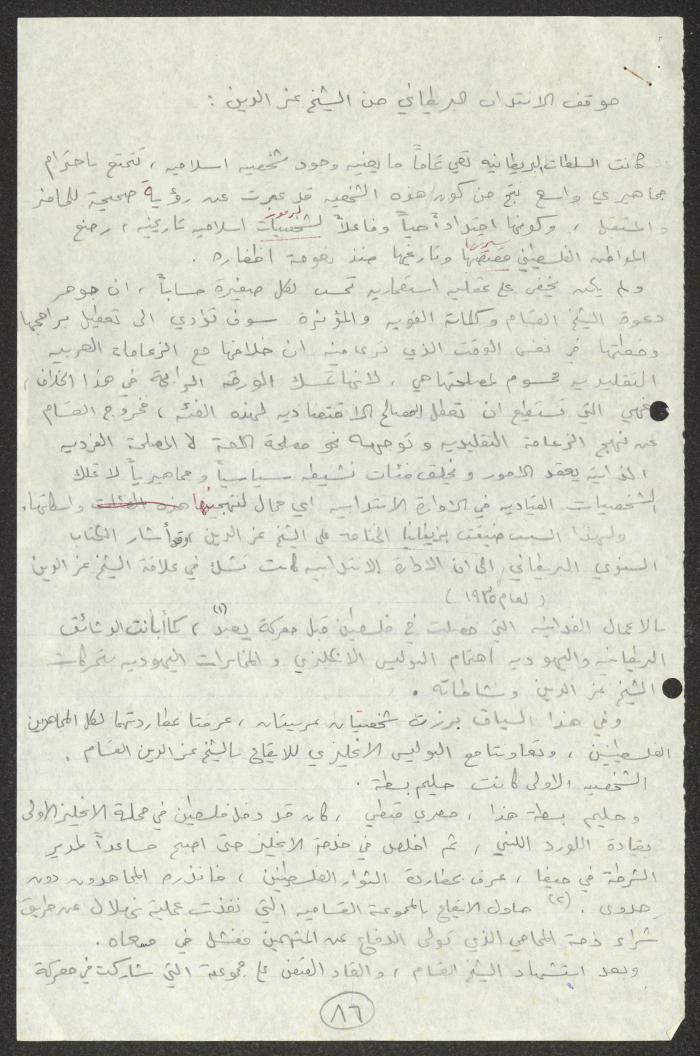 موقف الانتداب البريطاني من الشيخ عز الدين :
كانت السلطات البريطانيه تعي تماماً ما يعنيه وجود شخصيه اسلاميه ، تتمتع باحترام
جماهيري واسع نتج من كون هذه الشخصيه قد عبرت عن رؤية صحيحة للحاضر
والمستقبل ، وكونها امتداداً حياً وفاعلاً لرموز لشخصيات اسلاميه تاريخيه ، رضع
المواطن الفلسطيني قصتها سيرتها وتاريخها منذ نعومة اظفاره .
ولم يكن يخفى على عقليه استعماريه تحسب لكل صغيرة حساباً ، ان جوهر
دعوة الشيخ القسام وكلماته القويه والمؤثرة سوف تؤدي الى تعطيل برامجها
وخططها في نفس الوقت الذي ترى فيه ان خلافها مع الزعامات العربيه
التقليديه محسوم لمصلحتها هي ، لانها تمسك الورقه الرابحة في هذا الخلاف ،
فهي التي تستطيع ان تعطل المصالح الاقتصاديه لهذه الفئه ، فخروج القسام
عن نهج الزعامة التقليديه و توجهه نحو مصلحة الامة لا المصلحة الفرديه
الذاتيه يعقد الامور و يخلق فئات نشيطه سياسياً و جماهيرياً لا تملك
الشخصيات القياديه في الادارة الانتدابيه اي مجال لتهجينها هذه الفئات واسكاتها.
ولهذا السبب ضيقت بريطانيا الخناق على الشيخ عز الدين ، وقد أشار الكتاب
السنوي البريطاني الى ان الادارة الانتدابيه كانت تشك في علاقة الشيخ عز الدين
( لعام ١٩٣٥ )
بالاعمال الفدائيه التي حصلت في فلسطين قبل معركة يعبد (١) ، كما أبانت الوثائق
البريطانيه واليهوديه اهتمام البوليس الانكليزي و المخابرات اليهوديه بتحركات
الشيخ عز الدين ونشاطاته .
وفي هذا السياق برزت شخصيتان عربيتان ، عرفتا بمطاردتهما لكل المجاهدين
الفلسطينيين ، وتعاونتا مع البوليس الانجليزي للايقاع بالشيخ عز الدين القسام .
الشخصيه الاولى كانت حليم بسطة .
وحليم بسطة هذا ، مصري قبطي ، كان قد دخل فلسطين في حملة الانجليز الاولى
بقيادة اللورد اللنبي ، ثم اخلص في خدمة الانجليز حتى اصبح مساعداً لمدير
الشرطة في حيفا ، عرف بمطاردة الثوار الفلسطينين ، فانذره المجاهدون دون
جدوى . (٢) حاول الايقاع بالمجموعة القساميه التي نفذت عملية نهلال عن طريق
شراء ذمة المحامي الذي تولى الدفاع عن المتهمين ففشل في مسعاه .
وبعد استشهاد الشيخ القسام ، والقاء القبض على مجموعة التي شاركت في معركة
٨٦